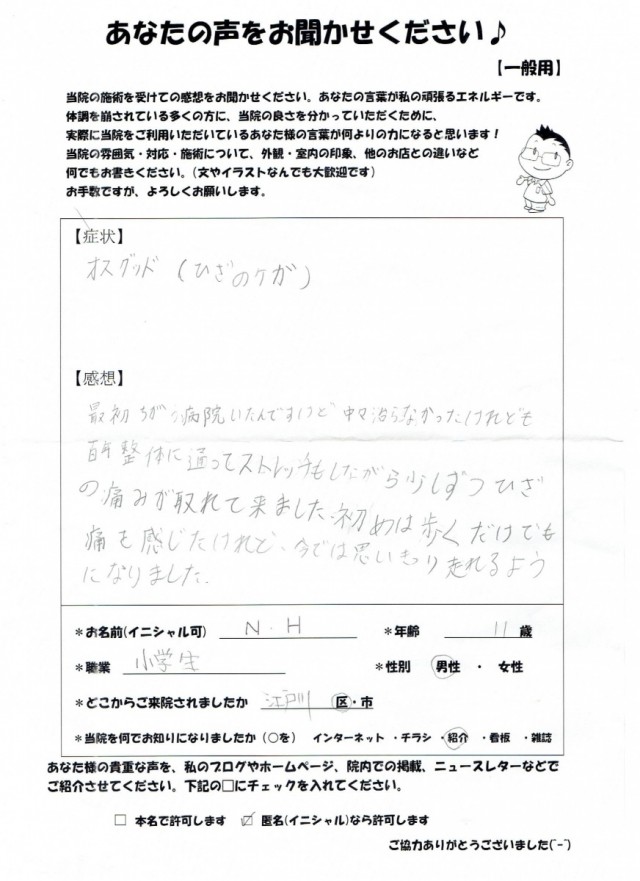 あなたの声をお聞かせください♪
【一般用】
当院の施術を受けての感想をお聞かせください。あなたの言葉が私の頑張るエネルギーです。
体調を崩されている多くの方に、当院の良さを分かっていただくために、
実際に当院をご利用いただいているあなた様の言葉が何よりの力になると思います！
当院の雰囲気・対応・施術について、外観・室内の印象、他のお店との違いなど
何でもお書きください。（文やイラストなんでも大歓迎です）
お手数ですが、よろしくお願いします。
【症状】
オスグッド（ひざのケガ）
【感想】
最初ちがう病院いたんですけど中々治らなかったけれども
整体に通ってストレッチもしながら少しずつひざ
の痛みが取れて来ました、初めは歩くだけでも
痛を感じたけれど、今では思いきり走れるよう
になりました.
＊お名前(イニシャル可) N.H ＊年齢 11 歳
＊職業 小学生 ＊性別 男性 ・ 女性
＊どこからご来院されましたか 江戸川 区・市
＊当院を何でお知りになりましたか（○を） インターネット ・チラシ ・紹介 ・看板 ・雑誌
あなた様の貴重な声を、私のブログやホームページ、院内での掲載、ニュースレターなどで
ご紹介させてください。下記の□にチェックを入れてください。
□ 本名で許可します ☑ 匿名(イニシャル)なら許可します
ご協力ありがとうございました(^-^)